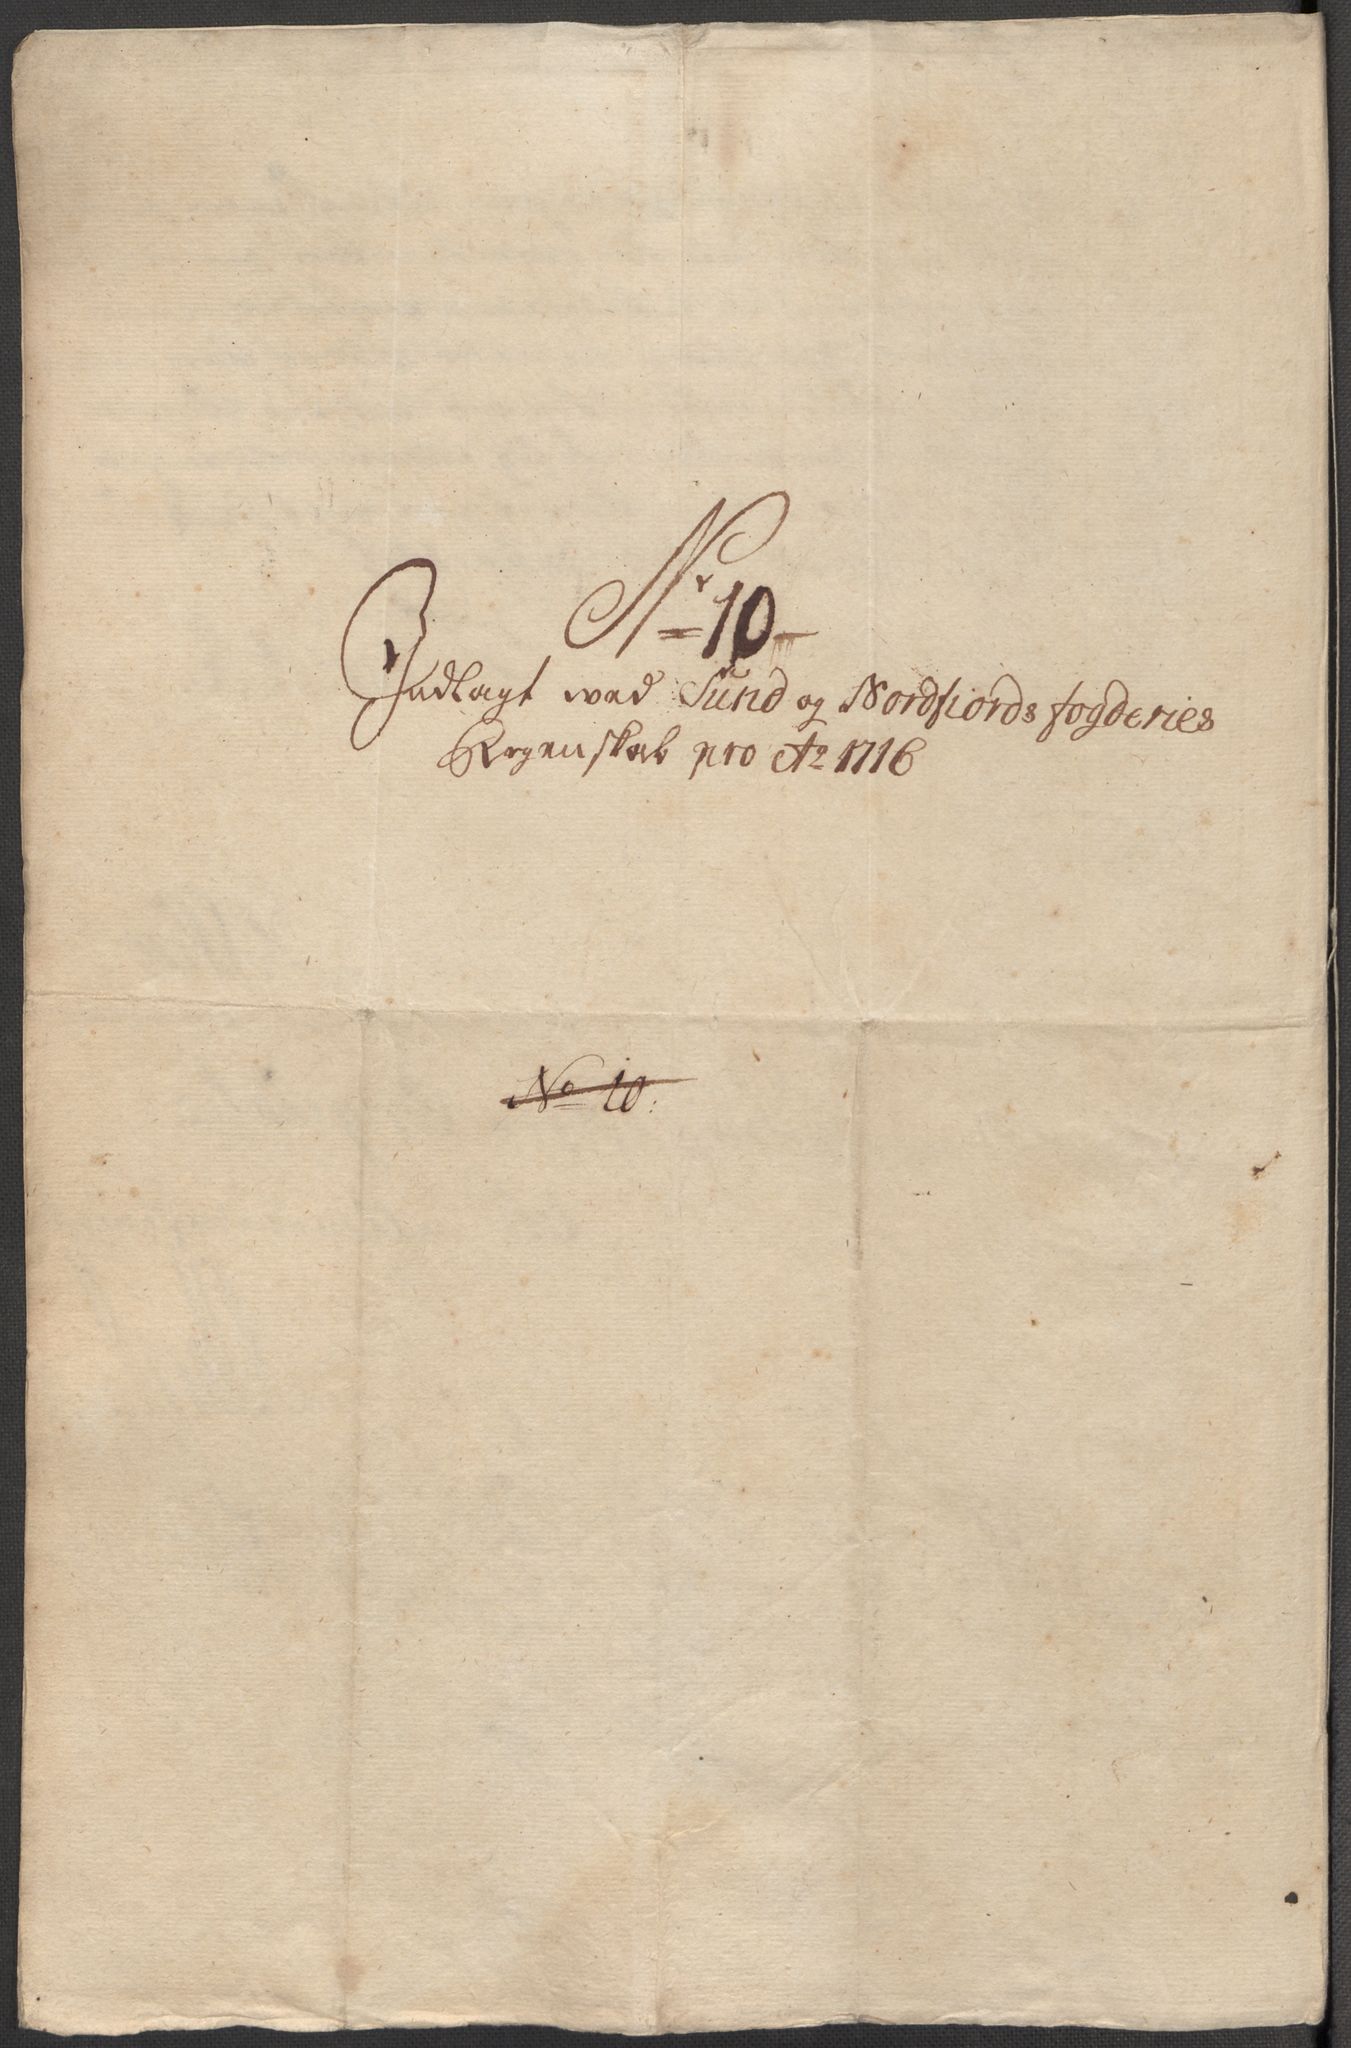 Nr 10
Indlagt wed Sund og Nordfiords fogderies
Regenskab pro Ao 1716
No 10: